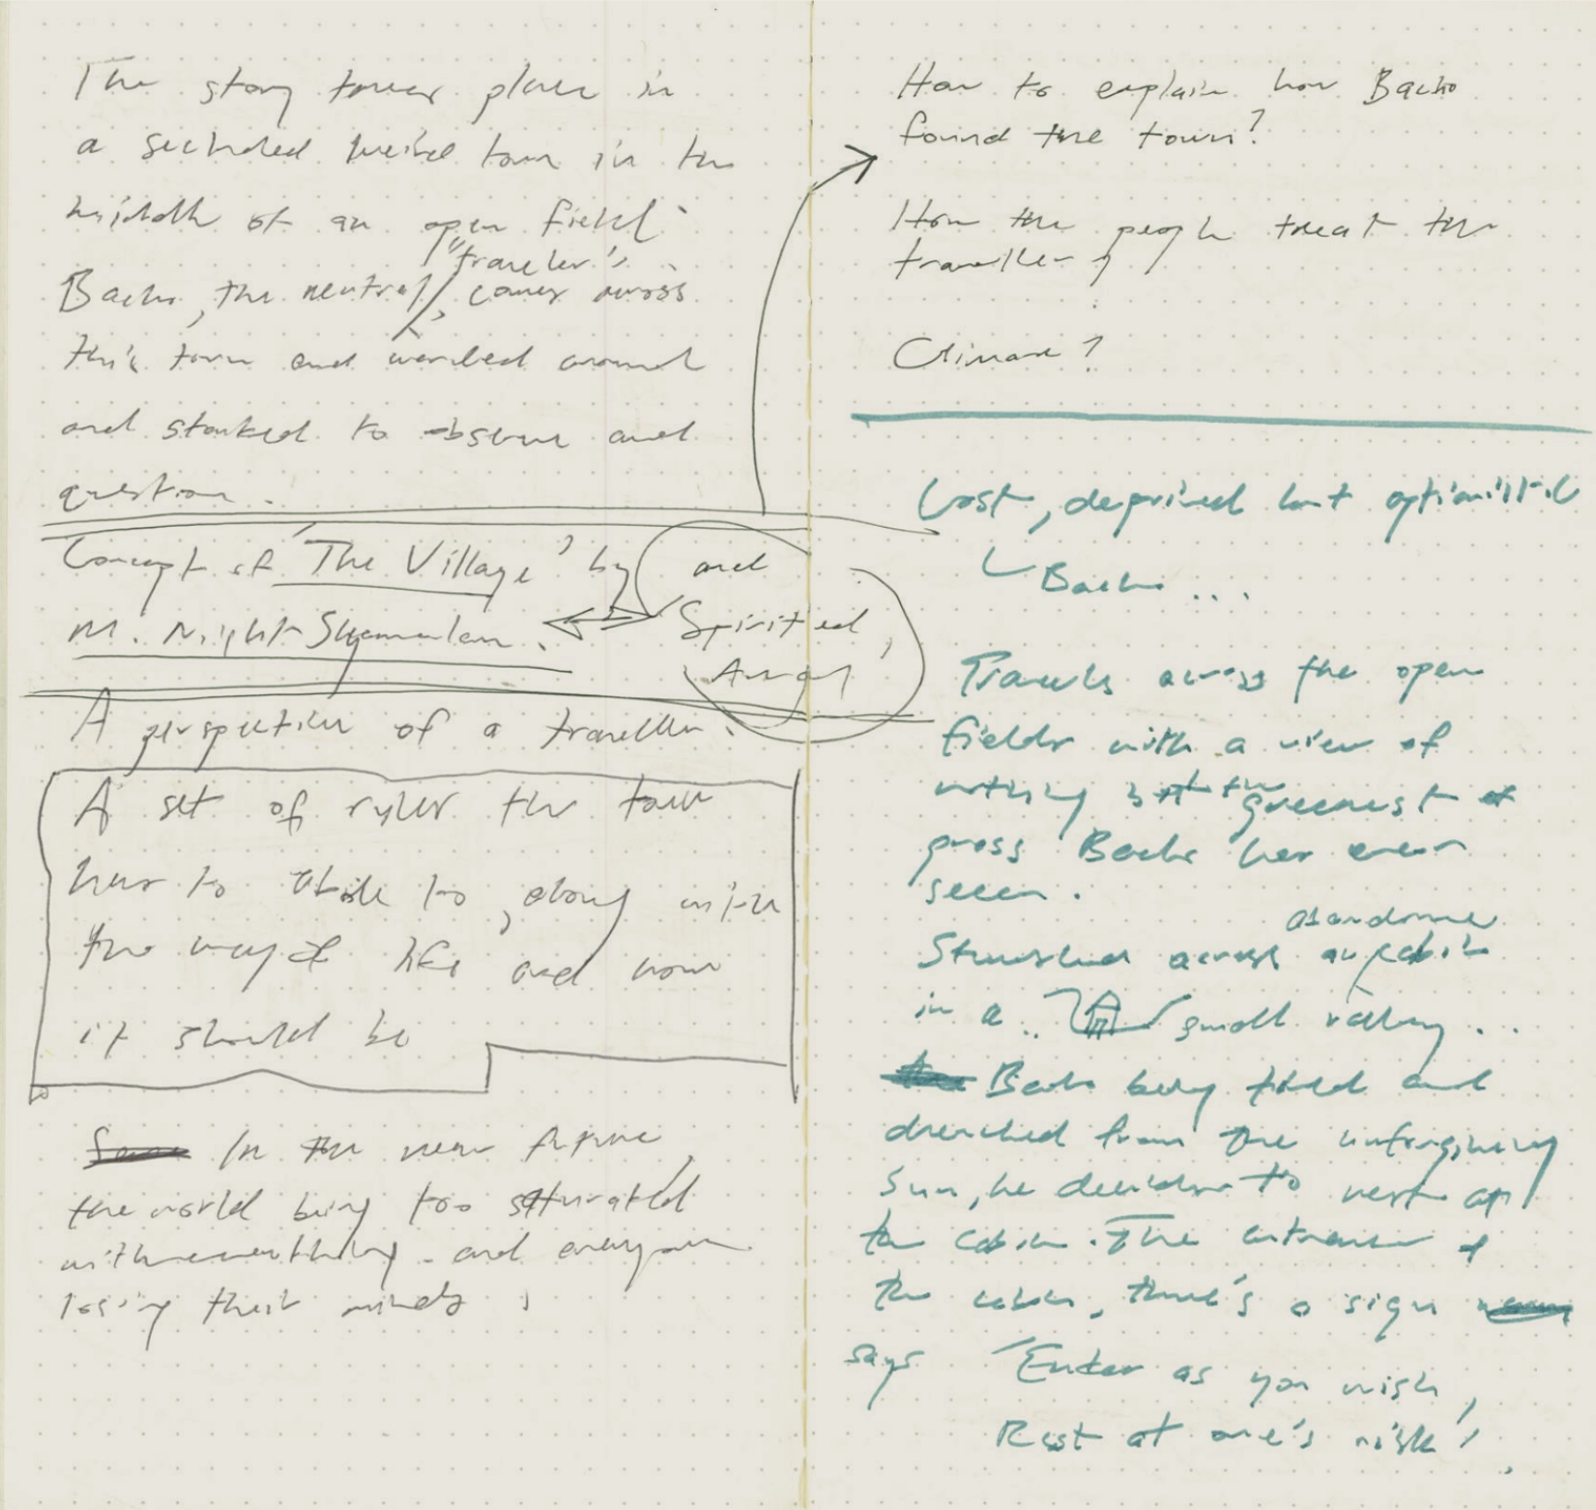 The story takes place in
a secluded weird town in the
middle of an open field.
"traveler"
Bacho, the neutral, comes across
this town and wanded around
and started to observe and
question.
Concept of 'The Village' by
M. Night Shyamalan.
and
'Spirited
Away'
A perspective of a traveller.
A set of rules the town
has to abide to, along with
the way of life and how
it should be
In the near future
the world being too saturated
with everything and everyone
losing their minds
How to explain how Bacho
found the town?
How the people treat the
traveller?
Climax?
Lost, deprived but optimistic
Bacho ...
Travels across the open
fields with a view of
nothing but the greenest
grass Bacho has ever
seen.
abandone
Stumbled across a cabin
in a .. small valley ...
Bacho being tired and
drenched from the unforgiving
sun, he decides to rest at
the cabin. The entrance of
the cabin, there's a sign
says 'Enter as you wish,
Rest at one's risk'